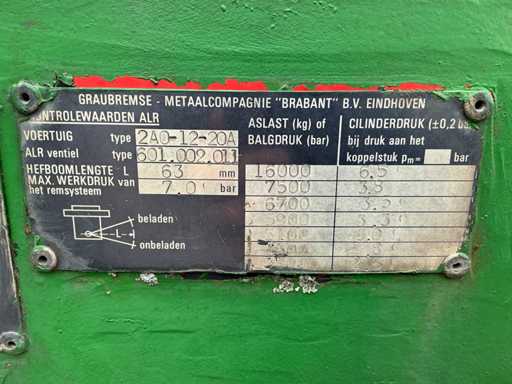 GRAUBREMSE - METAALCOMPAGNIE "BRABANT" B.V. EINDHOVEN
CONTROLEWAARDEN ALR
VOERTUIG type 2A0-12-20A
ALR ventiel type 601.002.011
HEFBOOMLENGTE L 63 mm
MAX. WERKDRUK van het remsysteem 7.0 bar
beladen
L
onbeladen
ASLAST (kg) of BALGDRUK (bar)
CILINDERDRUK (±0,2 bar)
bij druk aan het
koppelstuk pm= bar
16000 6.5
7500 3.8
6700